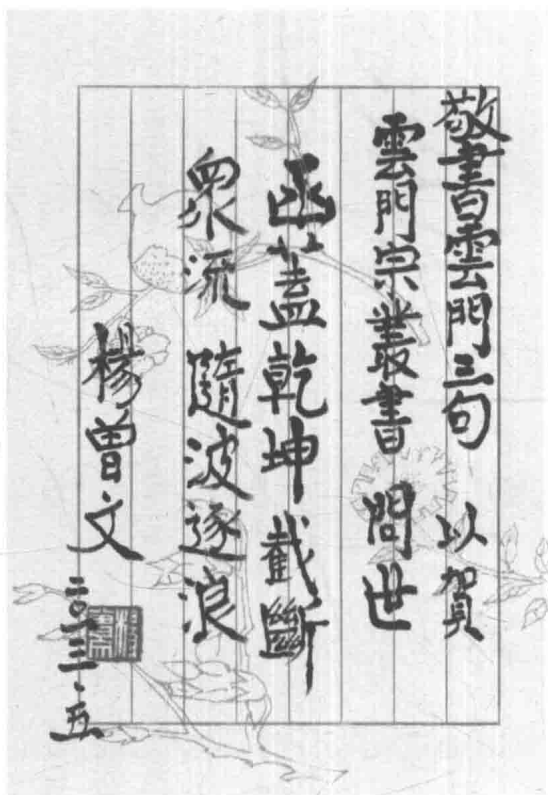 敬書雲門三句 以賀
雲門宗叢書 問世
函蓋乾坤 截斷
眾流 隨波逐浪
楊曾文
二〇一三·五